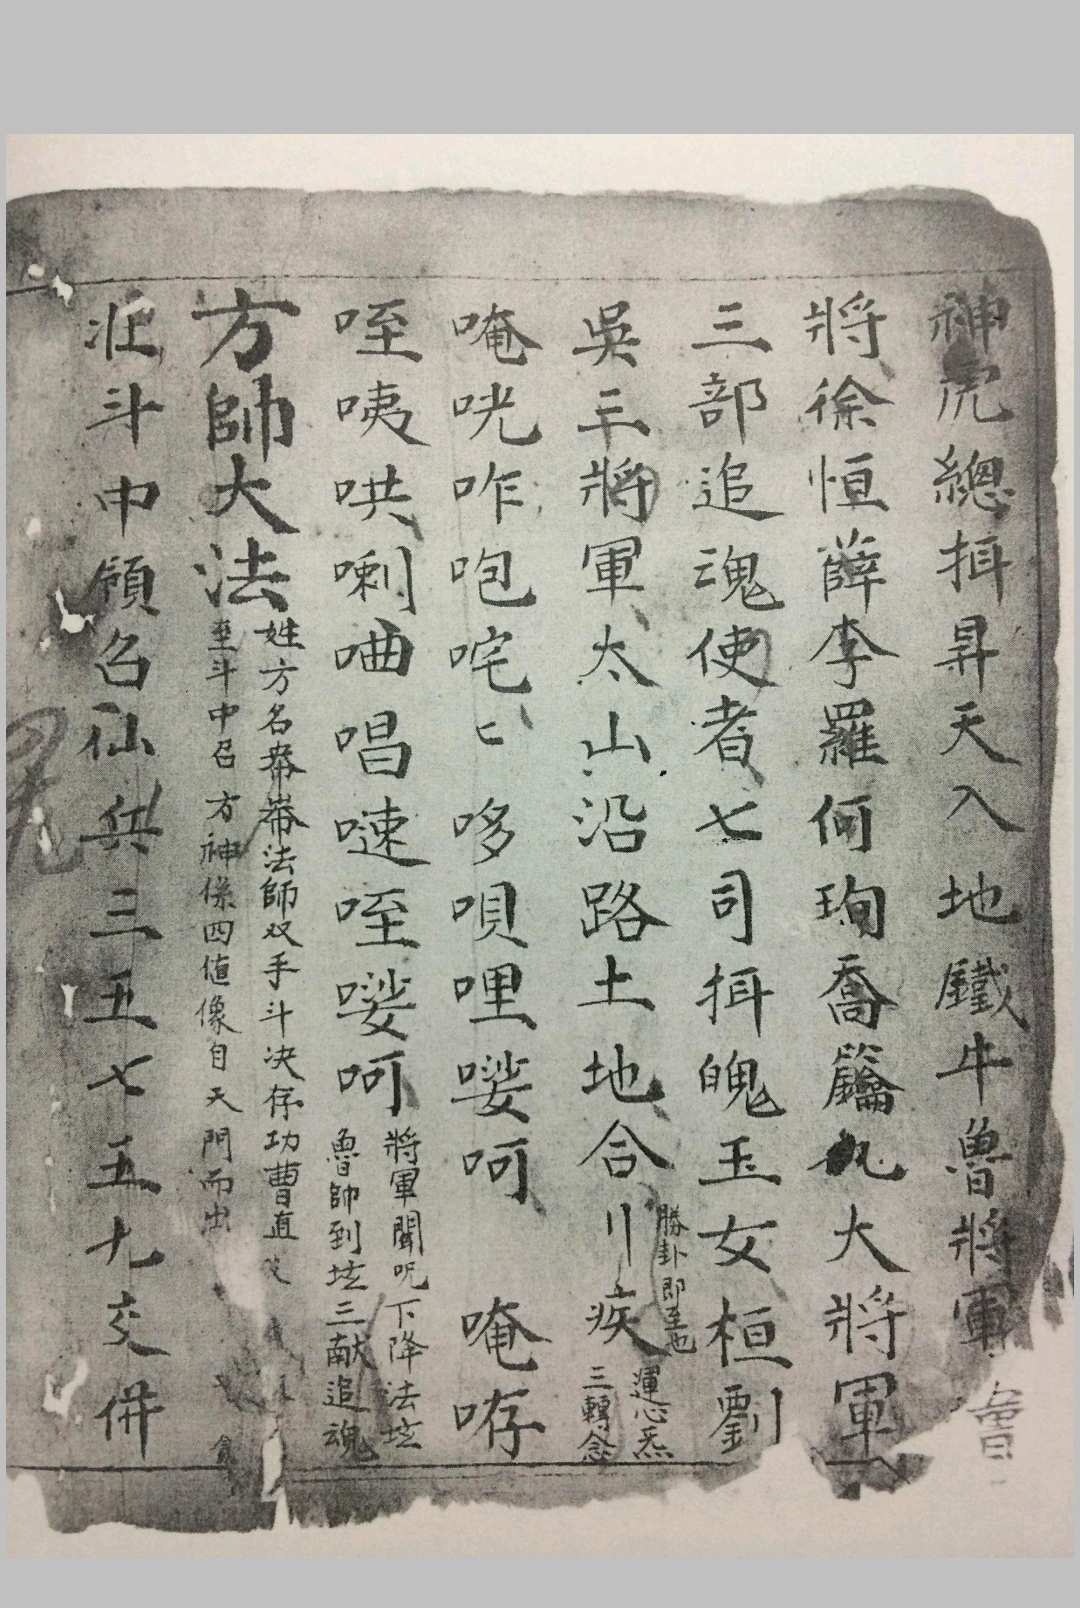 神虎總揖昇天入地鐵牛魯將軍
將徐恒薛李羅何珣喬籥丸大將軍
三部追魂使者七司揖魄玉女桓劉
吳三將軍太山沿路土地合川疾
勝卦即至也
運心炁
三轉念
唵咣咋咆咤匕哆唄哩㗲呵 唵哹
咥咦哄喇㖆唱嗹咥㗲呵
將軍聞呪下降法坛
魯帥到坛三献追魂
方帥大法
姓方名 法師双手斗决存功曹直
至斗中召方神係四値像自天門而出
斗中領召仙兵三五七五九交併